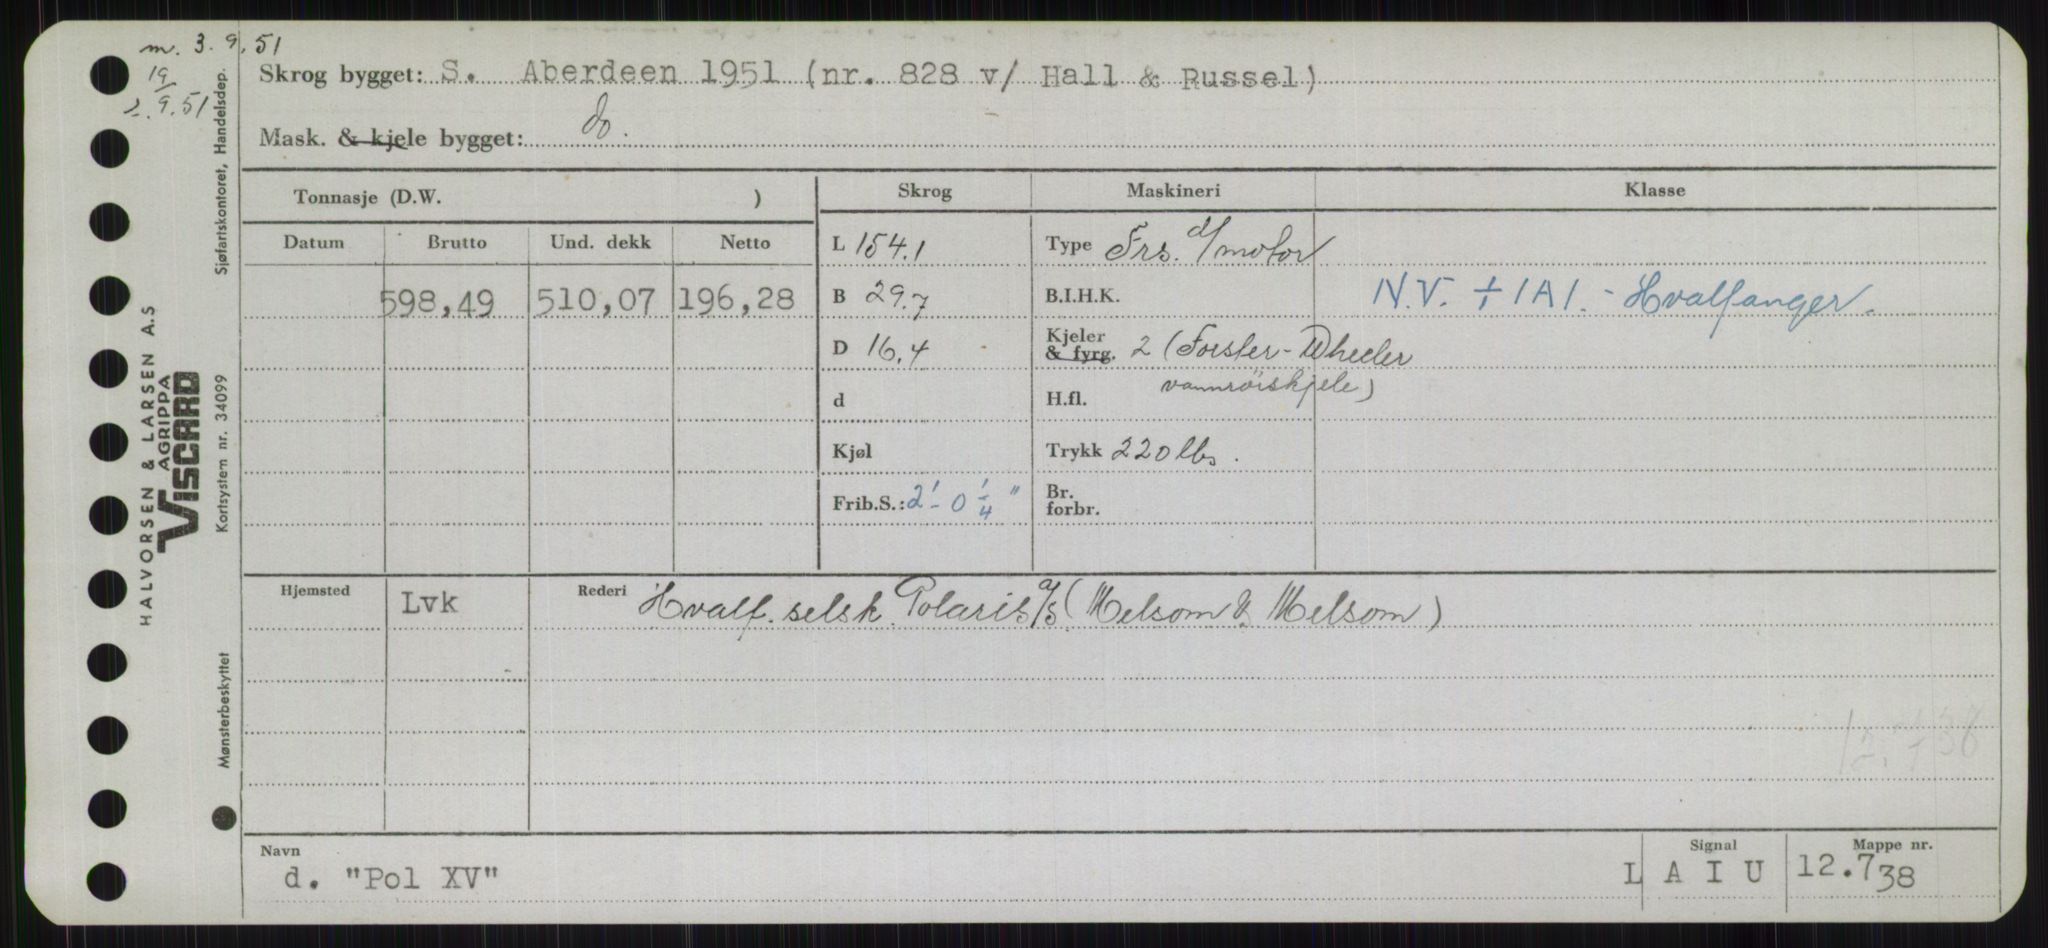 m. 3.9.51
19/2.9.51
Skrog bygget: S. Aberdeen 1951 (nr. 828 v/ Hall & Russel)
Mask. & kjele bygget: do.
Tonnasje (D.W. )
Skrog Maskineri Klasse
Datum Brutto Und. dekk Netto
598,49 510,07 196,28
L 154.1
B 29.7
D 16.4
d
Kjøl
Frib.S.: 2'-0 1/4"
Type Frs. d/motor
B.I.H.K.
Kjeler & fyrg. 2 (Forster-Wheeler
vannrörskjele)
H.fl.
Trykk 220 lbs.
Br. forbr.
N.V. + 1A1. - Hvalfanger.
Hjemsted Lvk Rederi Hvalf. selsk. Polaris a/s (Melsom & Melsom)
Navn
d. "Pol XV"
Signal
L A I U
Mappe nr.
12.738
Sjøfartskontoret, Handelsdep.
HALVORSEN & LARSEN A.S
AGRIPPA
VISCARD
Kortsystem nr. 34099
Mønsterbeskyttet